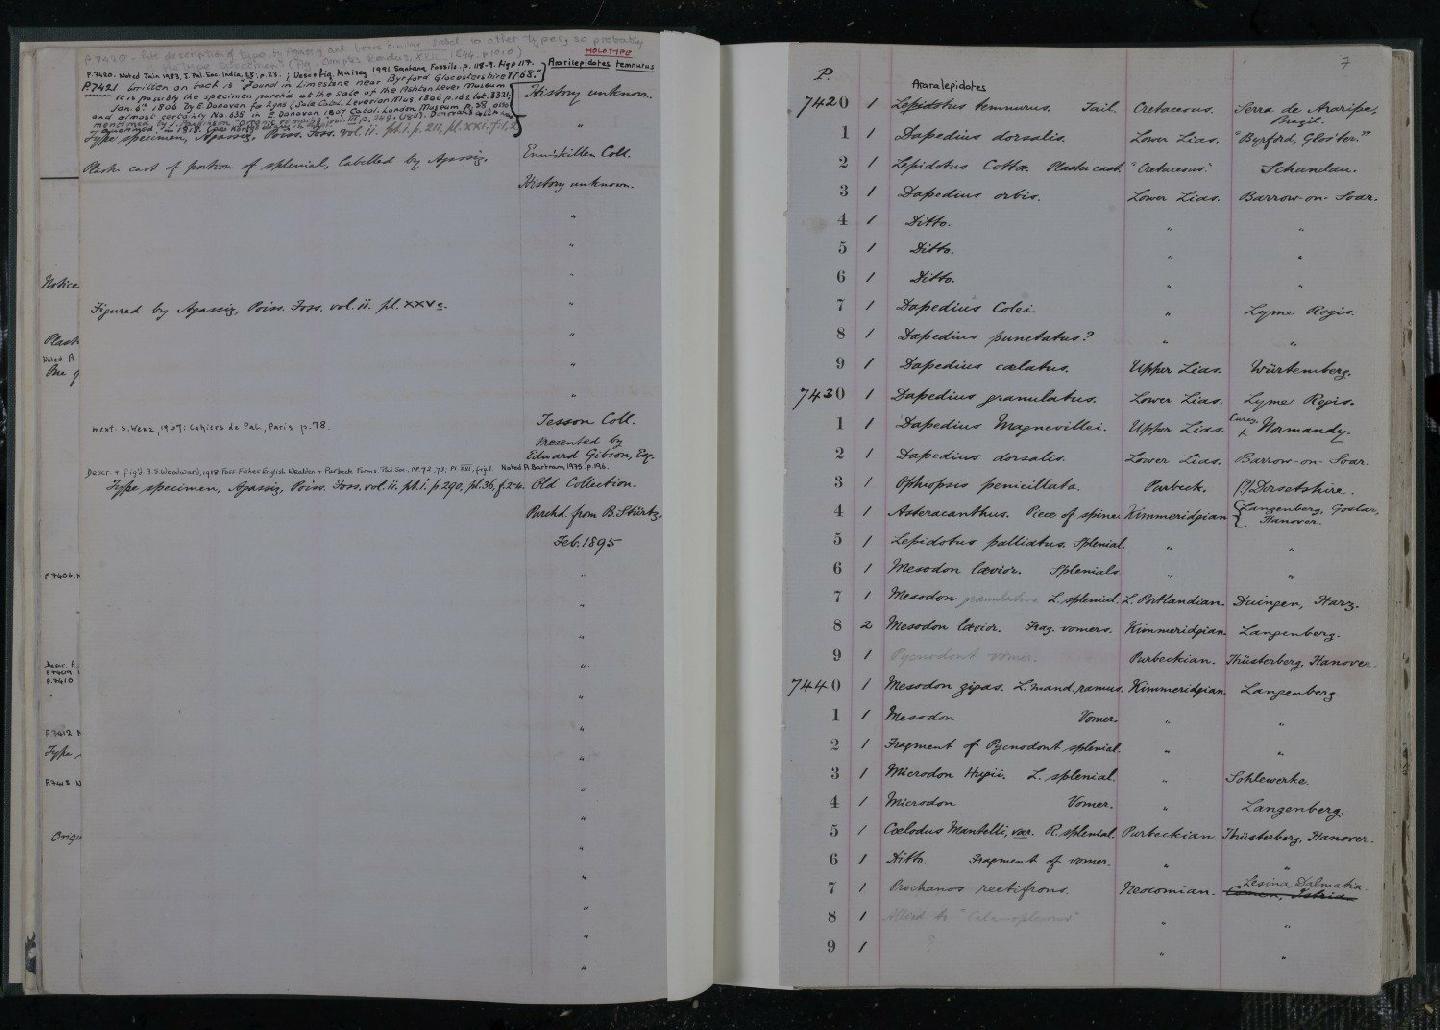 HOLOTYPE
Araripelepidotes temnurus
P.7420. Noted Jain 1983, J. Pal. Soc. India, 28. p.23. ; Descr + fig. Maisey 1991 Santana Fossils. p. 118-9. figs p 117.
P.7421 written on rock is "Found in Limestone near Byrford Glocestershire 1768."
It is possibly the specimen purchd at the sale of the Ashton Lever Museum
Jan. 6th 1806 by E. Donovan
Type specimen, Agassiz, Poiss. Foss. vol. ii. pt. i. p. 211, pl. XXI. f. 1, 2
History unknown.
"
Plaster cast of portion of splenial, labelled by Agassiz.
Enniskillen Coll.
History unknown.
Notice
Figured by Agassiz, Poiss. Foss. vol. ii. pl. XXV c.
Plast
One
Tesson Coll.
Ment. S. Wenz, 1967: Cahiers de Pal., Paris p. 78.
Presented by
Edward Gibson, Esq.
Descr. + fig'd. A. S. Woodward, 1918 Foss. Fishes English Wealden + Purbeck Forms. Pal. Soc. Noted A. Bartram 1975. p. 196.
Type specimen, Agassiz, Poiss. Foss. vol. ii. pt. i. p 290, pl. 36, f. 2-4. Old Collection.
Purchd. from B. Stürtz,
Feb. 1895
P7406.
P7409
P.7410
P7412
Type
P7418
Orig
7
P.
Araralepidotes
7420 1 Lepidotus temnurus. Tail. Cretaceous. Serra de Araripe, Brazil.
1 1 Dapedius dorsalis. Lower Lias. "Byrford, Glo'ster."
2 1 Lepidotus Cottæ. Plaster cast. "Cretaceous". Schandau.
3 1 Dapedius orbis. Lower Lias. Barrow-on-Soar.
4 1 Ditto. " "
5 1 Ditto. " "
6 1 Ditto. " "
7 1 Dapedius Colei. " Lyme Regis.
8 1 Dapedius punctatus? " "
9 1 Dapedius cælatus. Upper Lias. Würtemberg.
7430 1 Dapedius granulatus. Lower Lias. Lyme Regis.
1 1 Dapedius Magnevillei. Upper Lias. Curcy, Normandy.
2 1 Dapedius dorsalis. Lower Lias. Barrow-on-Soar.
3 1 Ophiopsis penicillata. Purbeck. (?) Dorsetshire.
4 1 Asteracanthus. Piece of spine. Kimmeridgian Langenberg, Goslar, Hanover.
5 1 Lepidotus palliatus. Splenial. " "
6 1 Mesodon lævior. Splenials " "
7 1 Mesodon granulatus L. splenial. L. Portlandian. Duingen, Harz.
8 2 Mesodon lævior. Frag. vomers. Kimmeridgian Langenberg.
9 1 Pycnodont vomer. Purbeckian. Thüsterberg, Hanover.
7440 1 Mesodon gigas. L. mand. ramus. Kimmeridgian Langenberg
1 1 Mesodon Vomer. " "
2 1 Fragment of Pycnodont splenial. " "
3 1 Microdon Hugii. L. splenial. " Sohlewerke.
4 1 Microdon Vomer. " Langenberg.
5 1 Cœlodus Mantelli, var. R. splenial. Purbeckian Thüsterberg, Hanover.
6 1 Ditto. Fragment of vomer. " "
7 1 Prochanos rectifrons. Neocomian. Lesina, Dalmatia. Comen, Istria
8 1 Allied to " " "
9 1 ? " "